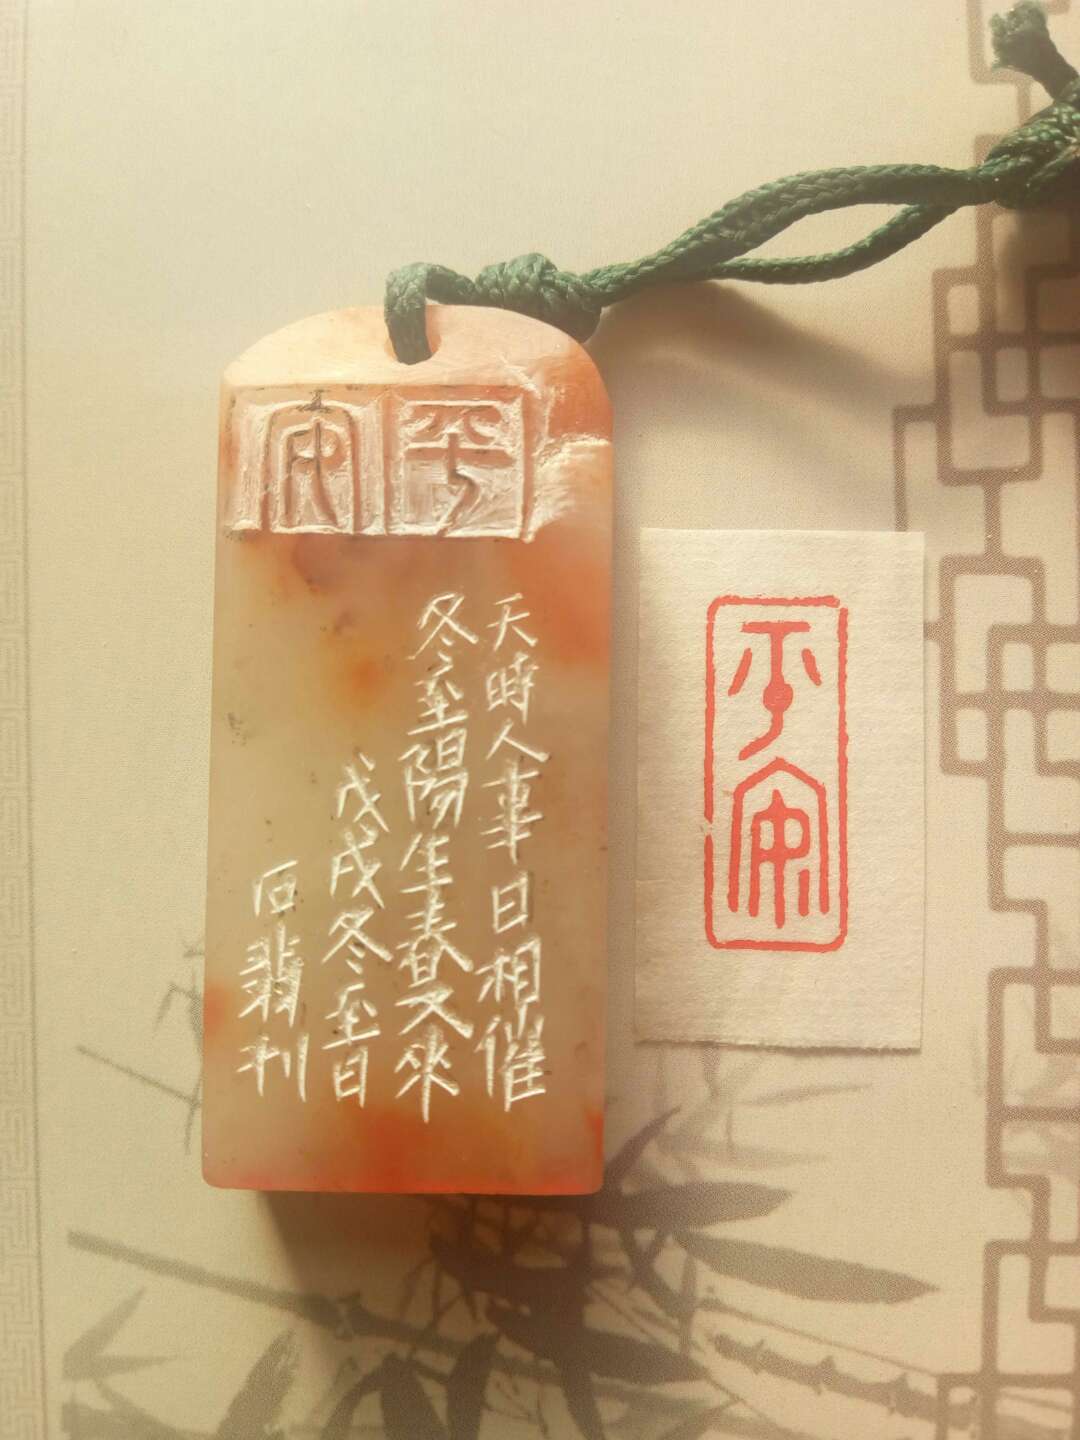 平安
天時人事日相催
冬至陽生春又來
戊戌冬至日
石翡刊
平安